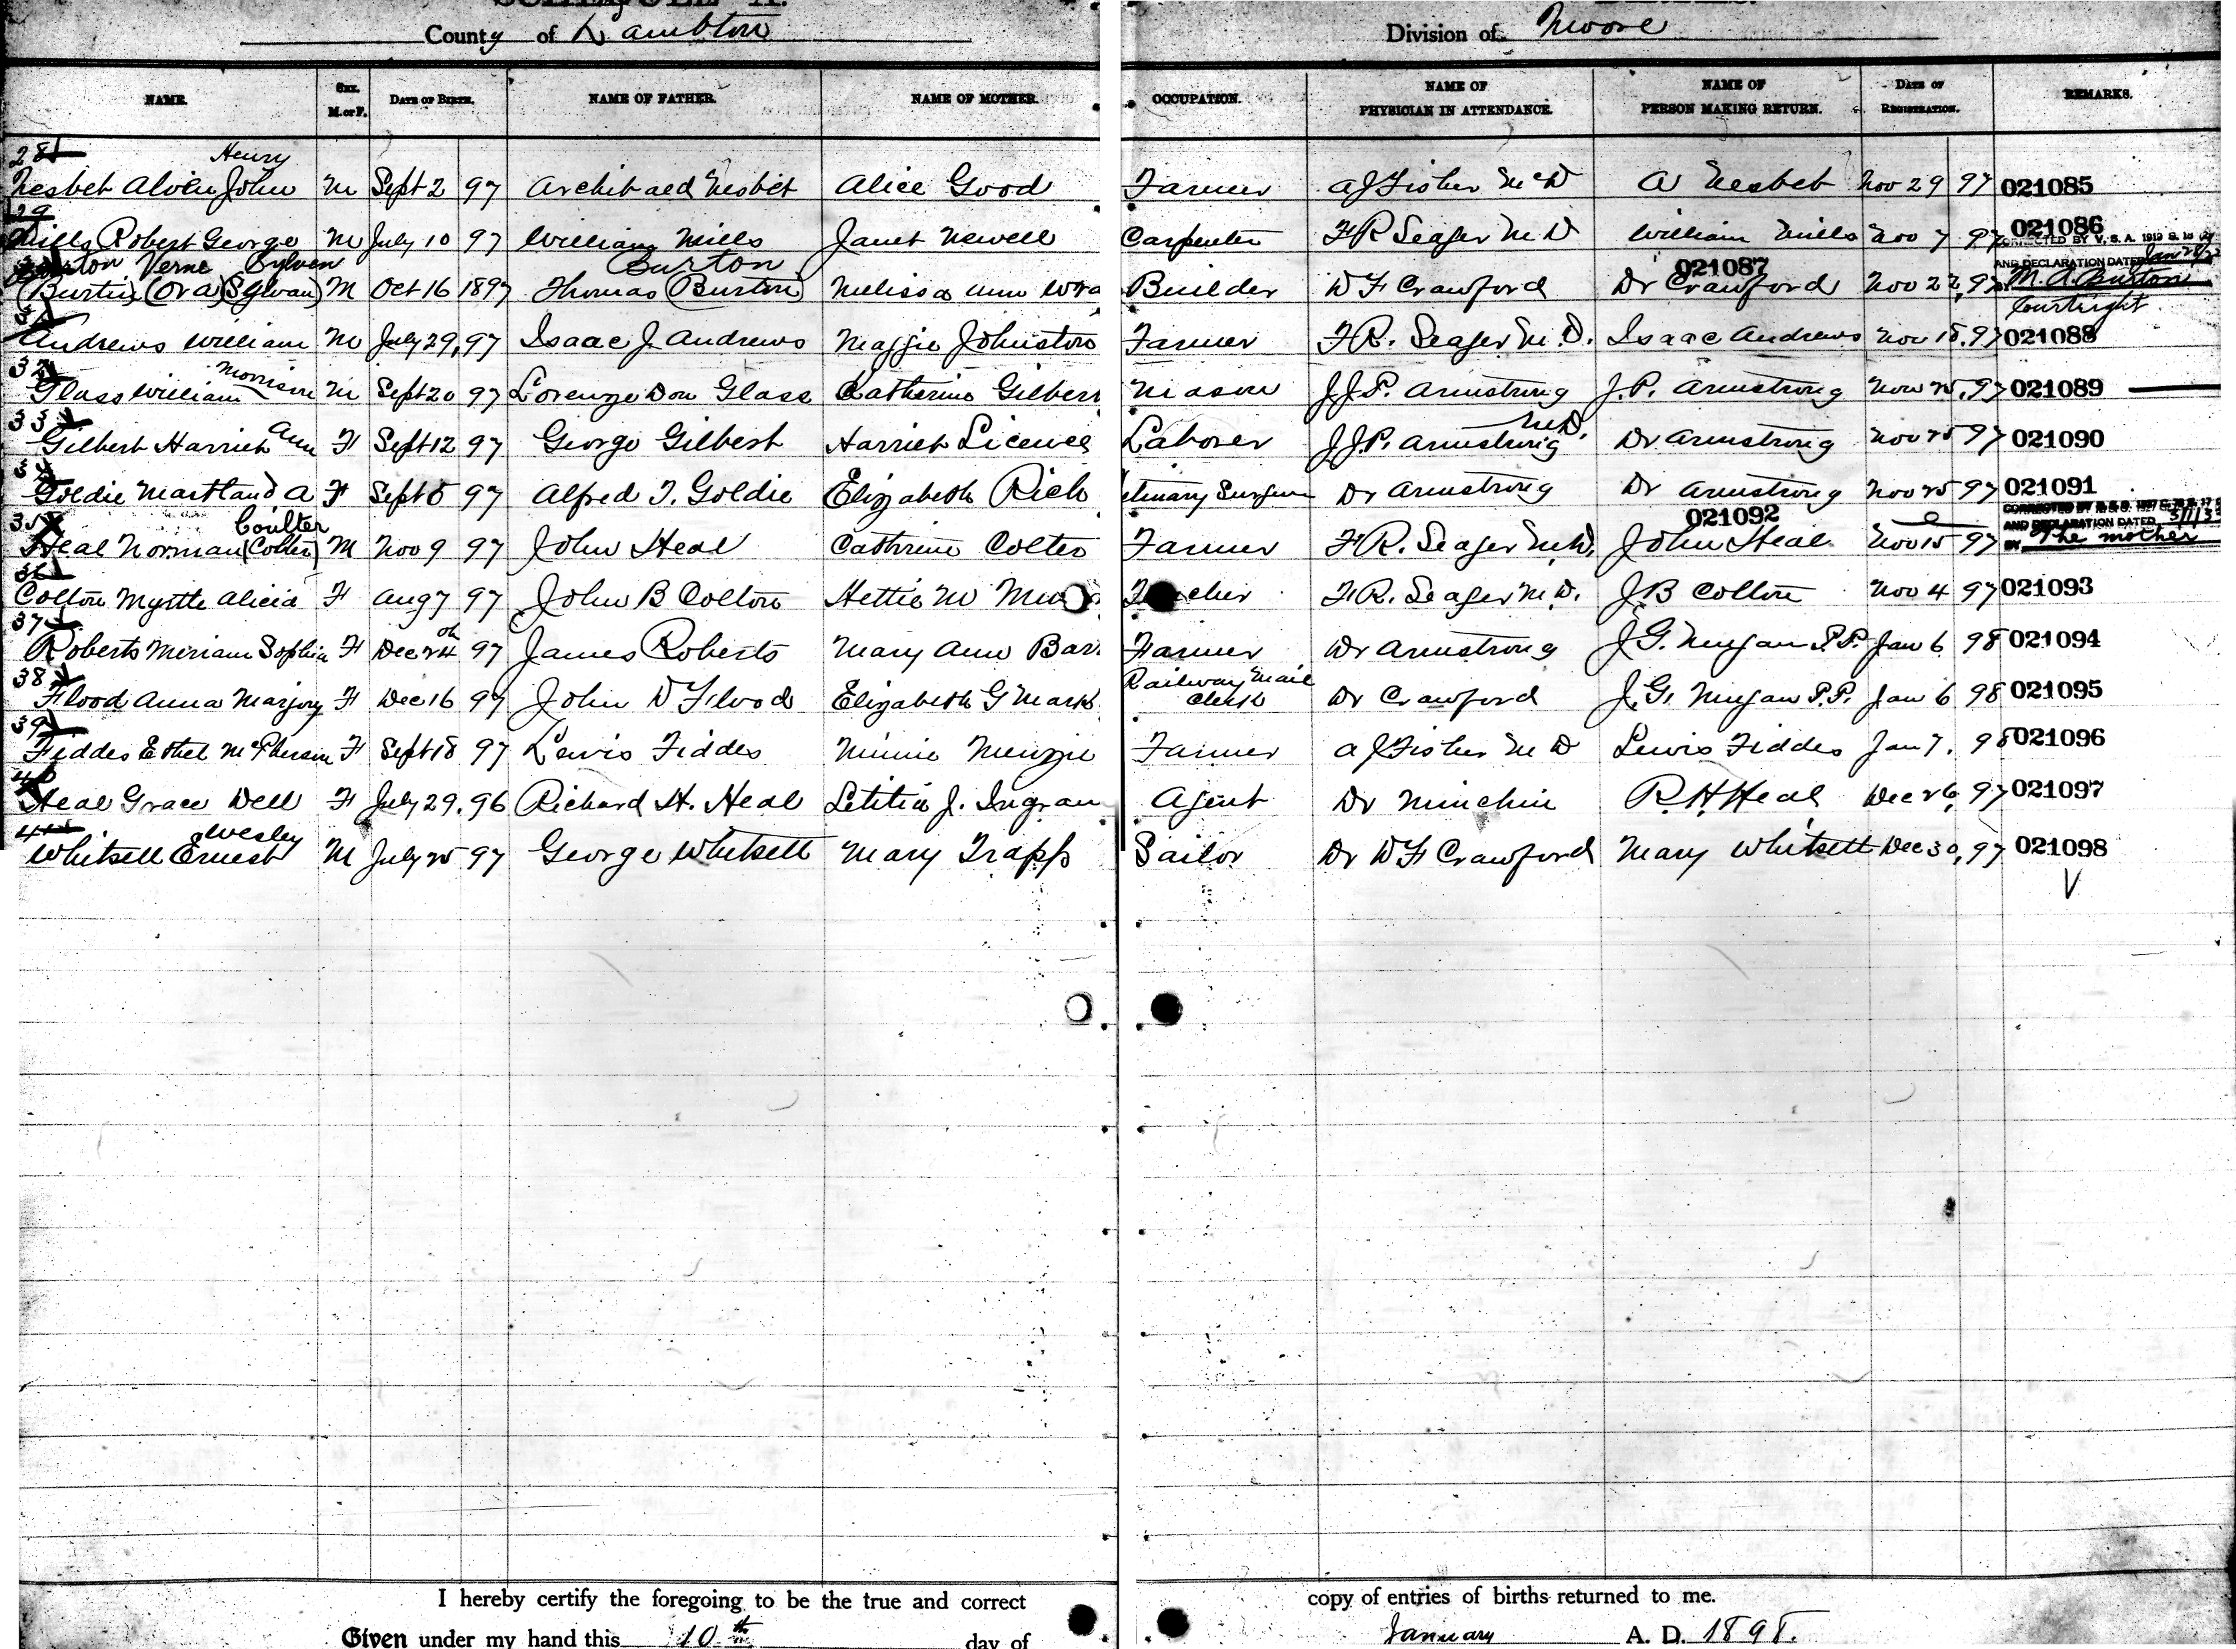 SCHEDULE A.
County of Lambton Division of Moore
NAME. SEX. M. or F. DATE OF BIRTH. NAME OF FATHER. NAME OF MOTHER. OCCUPATION. NAME OF PHYSICIAN IN ATTENDANCE. NAME OF PERSON MAKING RETURN. DATE OF REGISTRATION. REMARKS.
28 Henry
Nesbet Alvin John M Sept 2 97 Archibald Nesbet Alice Good Farmer A J Fisher M D A Nesbet Nov 29 97 021085
29
Mills Robert George M July 10 97 William Mills Janet Newell Carpenter F R Seager M D William Mills Nov 7 97 021086
CORRECTED BY V. S. A. 1919 S.
Burton Verne Sylven Burton 021087 AND DECLARATION DATED Jan
(Burtis) (Ora) (Sylvan) M Oct 16 1897 Thomas (Burton) Melissa Ann Wra Builder W F Crawford Dr Crawford Nov 22, 97 M. A. Burton
Courtright
31
Andrews William M July 29, 97 Isaac J. Andrews Maggie Johnston Farmer F R. Seager M. D. Isaac Andrews Nov 18. 97 021088
32 Morrison
Glass William M Sept 20 97 Lorenzo Don Glass Catherine Gilbert Mason J. J. P. Armstrong J. P. Armstrong Nov 25. 97 021089
33 Ann M.D.
Gilbert Harriet F Sept 12 97 George Gilbert Harriet Labourer J. J. P. Armstrong Dr Armstrong Nov 25 97 021090
34
Goldie Maitland A F Sept 5 97 Alfred T. Goldie Elizabeth Rich Surgeon Dr Armstrong Dr Armstrong Nov 25 97 021091
35 Coulter 021092 AND DECLARATION DATED
Heal Norman (Colter) M Nov 9 97 John Heal Cathrine Colter Farmer F R. Seager M. D. John Heal Nov 15 97 The mother
36
Colton Myrtle Alicia F Aug 7 97 John B Colton Hettie M F. R. Seager M. D. J. B Colton Nov 4 97 021093
37
Roberts Miriam Sophia F Dec 24 97 James Roberts Mary Ann Bar Farmer Dr Armstrong J. G. P. P. Jan 6 98 021094
38 Railway Mail
Flood Anna Marjory F Dec 16 97 John D Flood Elizabeth G Mark Clerk Dr Crawford J. G. P. P. Jan 6 98 021095
39
Fiddes Ethel McPherson F Sept 18 97 Lewis Fiddes Minnie Menzie Farmer A J Fisher M D Lewis Fiddes Jan 7. 98 021096
40
Heal Grace Dell F July 29. 96 Richard H. Heal Letitia J. Ingram Agent Dr Minchin R. H. Heal Dec 26, 97 021097
41 Wesley
Whitsett Ernest M July 25 97 George Whitsett Mary Trapp Sailor Dr W F Crawford Mary Whitsett Dec 30, 97 021098
I hereby certify the foregoing to be the true and correct copy of entries of births returned to me.
Given under my hand this 10th day of January A. D. 1898.